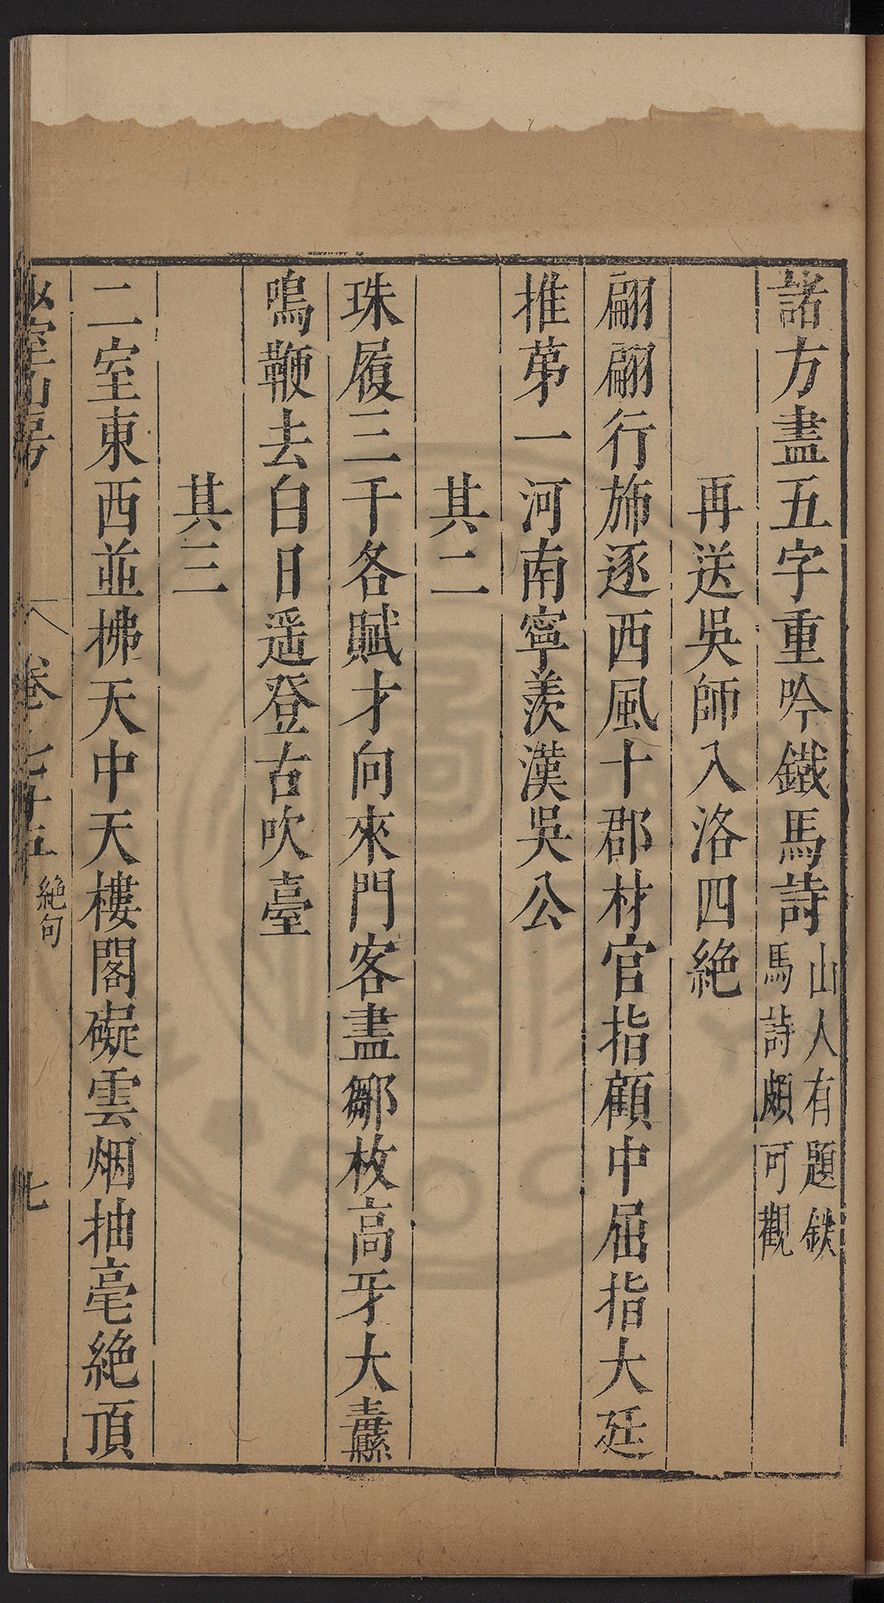 諸方盡五字重吟鐵馬詩山人有題鉄馬詩頗可觀
再送吳師入洛四絶
翩翩行斾逐西風十郡材官指顧中屈指大廷
推苐一河南寧羡漢吳公
其二
珠履三千各賦才向來門客盡鄒枚高牙大纛
鳴鞭去白日遥登古吹臺
其三
二室東西並拂天中天樓閣礙雲烟抽毫絶頂
室山房
卷七十五
絶句
七